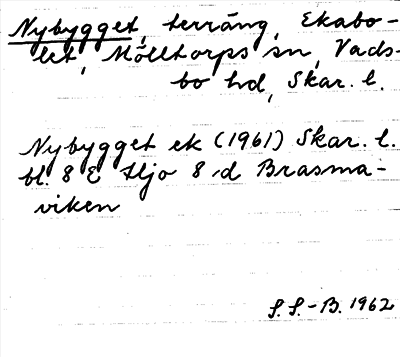 Nybygget, terräng, Ekabo-
let, Mölltorps sn, Vads-
bo hd, Skar. l.
Nybygget ek (1961) Skar. l.
bl. 8 E Hjo 8 d Brasma-
viken
S. S.-B. 1962